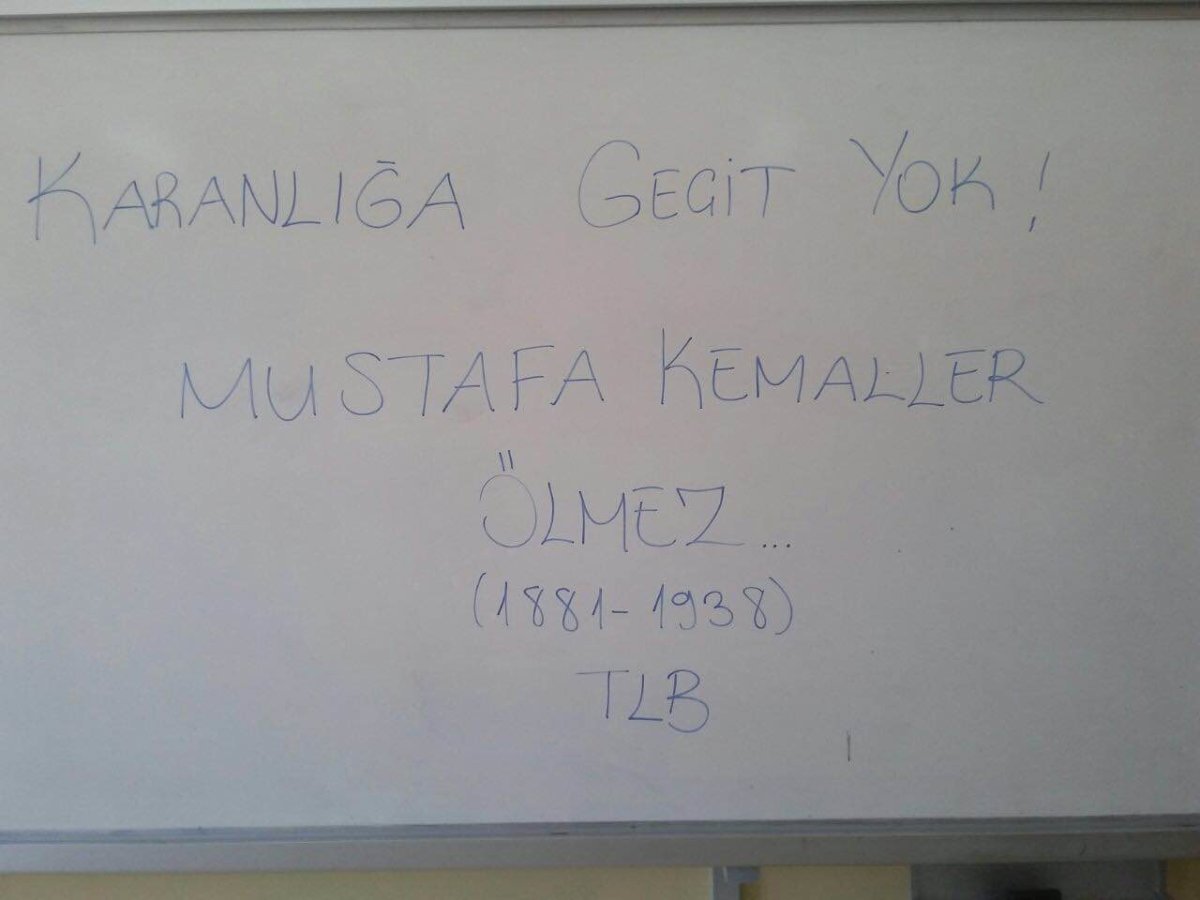 KARANLIĞA GEGİT YOK!
MUSTAFA KEMALLER
ÖLMEZ...
(1881-1938)
TLB